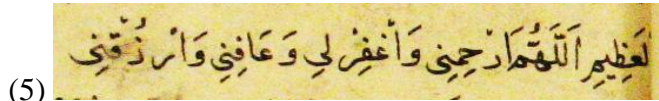 لعَظِيمِ اَللَّهُمَّ ارْحِمِنِى وَاْغْفِرْ لِي وَعَافِنِي وَارْزُقْنِى
(5)